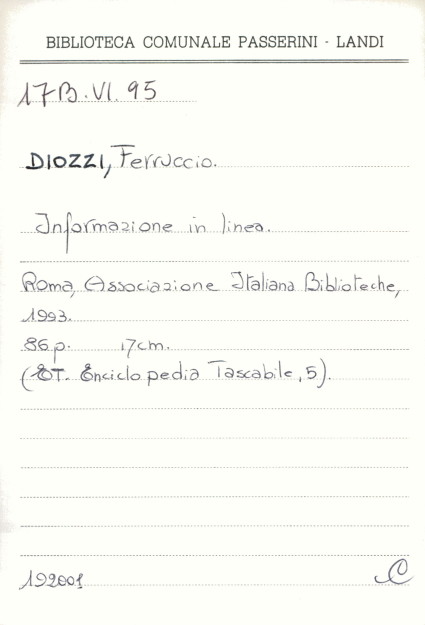 BIBLIOTECA COMUNALE PASSERINI - LANDI
17B.VI.95
DIOZZI, Ferruccio.
Informazione in linea.
Roma, Associazione Italiana Biblioteche,
1993.
86p. 17cm.
(ET. Enciclopedia Tascabile, 5).
192001 C